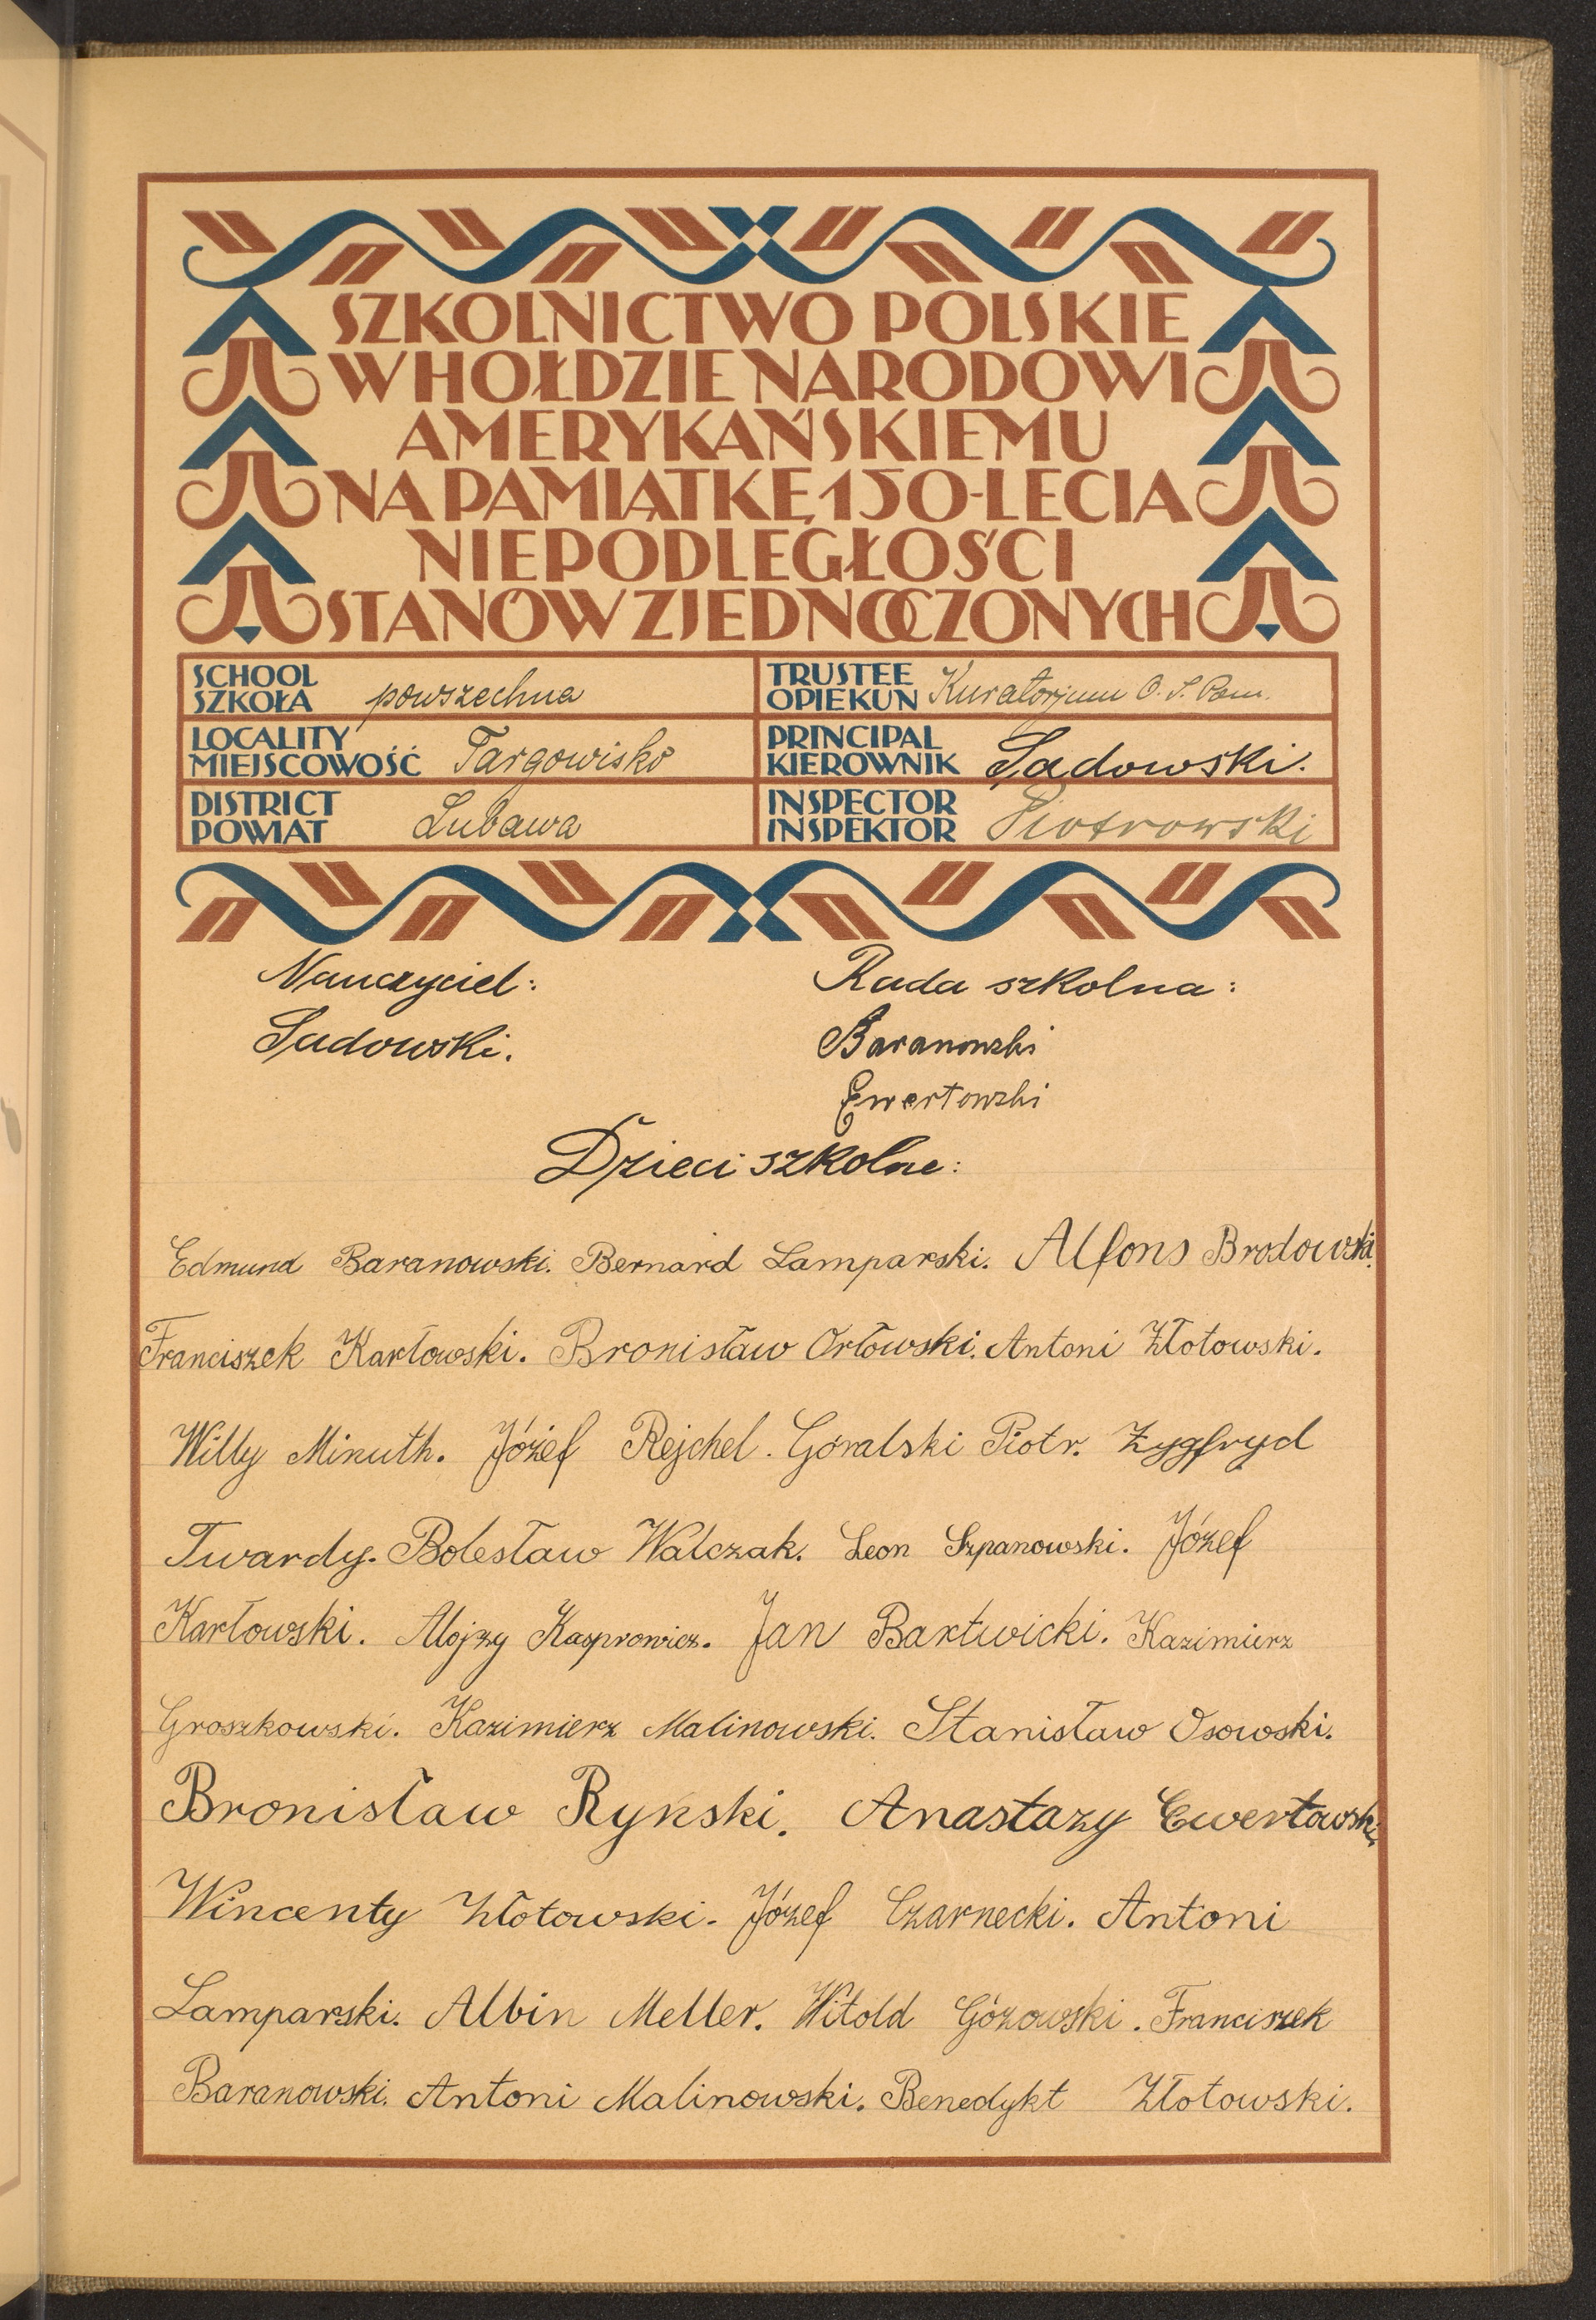 SZKOLNICTWO POLSKIE
W HOŁDZIE NARODOWI
AMERYKAŃSKIEMU
NA PAMIĄTKĘ 150-LECIA
NIEPODLEGŁOŚCI
STANÓW ZJEDNOCZONYCH
SCHOOL
SZKOŁA powszechna
TRUSTEE
OPIEKUN Kuratorjum O. S. Pom.
LOCALITY
MIEJSCOWOŚĆ Targowisko
PRINCIPAL
KIEROWNIK Sadowski.
DISTRICT
POWIAT Lubawa
INSPECTOR
INSPEKTOR Piotrowski
Nauczyciel:
Sadowski.
Rada szkolna:
Baranowski
Ewertowski
Dzieci szkolne:
Edmund Baranowski. Bernard Lamparski. Alfons Brodowski.
Franciszek Karłowski. Bronisław Orłowski. Antoni Złotowski.
Willy Minuth. Józef Rejchel. Góralski Piotr. Zygfryd
Twardy. Bolesław Walczak. Leon Szpanowski. Józef
Karłowski. Alojzy Kasprowicz. Jan Bartwicki. Kazimierz
Groszkowski. Kazimierz Malinowski. Stanisław Osowski.
Bronisław Rynski. Anastazy Ewertowski.
Wincenty Złotowski. Józef Czarnecki. Antoni
Lamparski. Albin Meller. Witold Gózowski. Franciszek
Baranowski. Antoni Malinowski. Benedykt Złotowski.